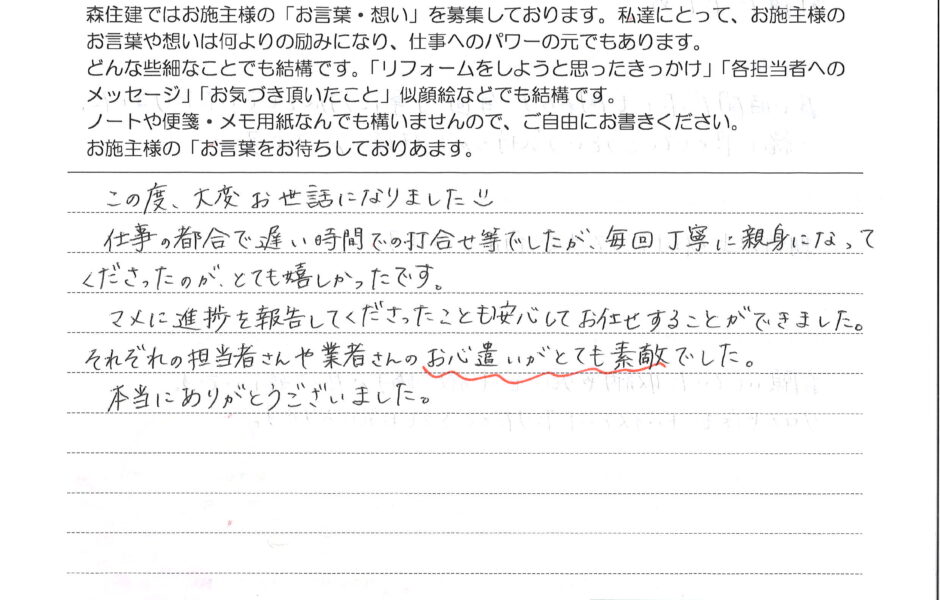 森住建ではお施主様の「お言葉・想い」を募集しております。私達にとって、お施主様の
お言葉や想いは何よりの励みになり、仕事へのパワーの元でもあります。
どんな些細なことでも結構です。「リフォームをしようと思ったきっかけ」「各担当者への
メッセージ」「お気づき頂いたこと」似顔絵などでも結構です。
ノートや便箋・メモ用紙なんでも構いませんので、ご自由にお書きください。
お施主様の「お言葉をお待ちしておりあます。
この度、大変お世話になりました
仕事の都合で遅い時間での打合せ等でしたが、毎回丁寧に親身になって
くださったのが、とても嬉しかったです。
マメに進捗を報告してくださったことも安心してお任せすることができました。
それぞれの担当者さんや業者さんのお心遣いがとても素敵でした。
本当にありがとうございました。